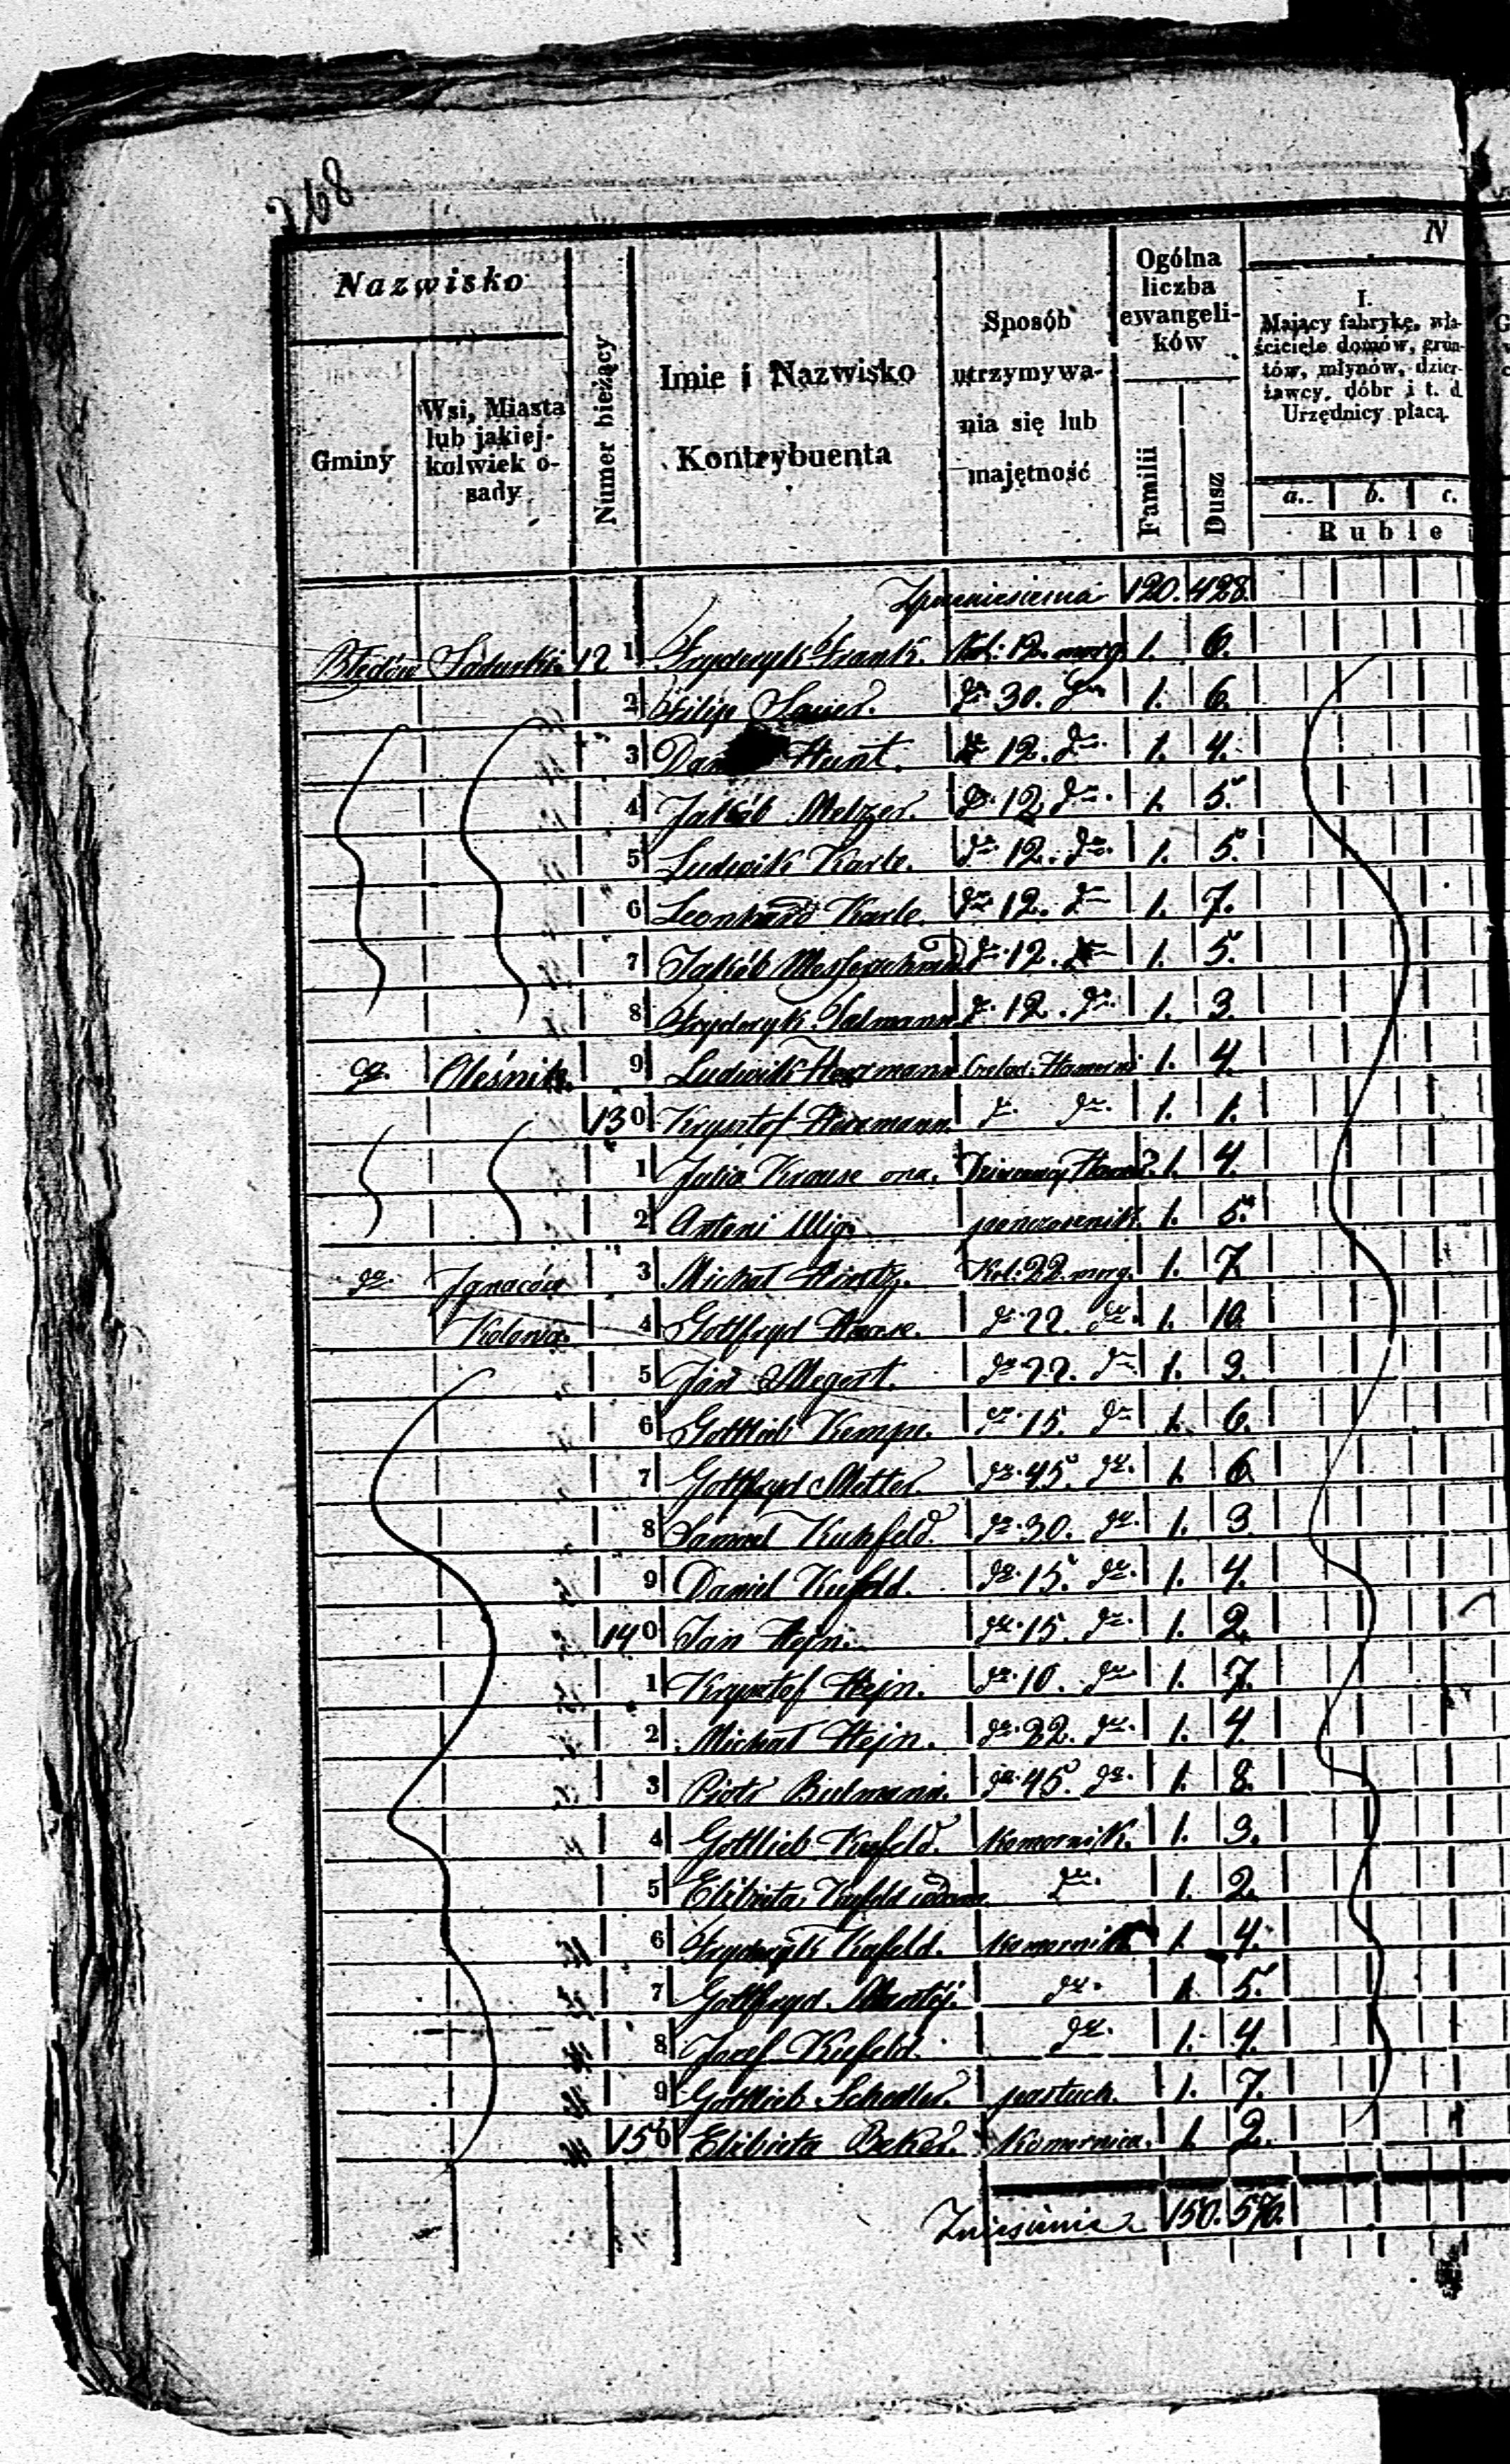 268
N
Nazwisko
Gminy
Wsi, Miasta
lub jakiej-
kolwiek o-
sady
Numer bieżący
Imie i Nazwisko
Kontrybuenta
Sposób
utrzymywa-
nia się lub
majętność
Ogólna
liczba
ewangeli-
ków
Familii
Dusz
I.
Mający fabrykę, wła-
ściciele domów, grun-
tów, młynów, dzier-
żawcy, dóbr i t. d
Urzędnicy płacą
a. b. c.
Ruble
Zprzeniesienia 120. 428.
Błędów Sadurki 12 1 Fryderyk Frank. Kol: 12. morg. 1. 6.
2 Filip Sauer. do 30. do 1. 6.
3 Hunt. do 12. do 1. 4.
4 Jakób Metzger. do 12. do 1. 5.
5 Ludwik Karle. do 12. do 1. 5.
6 Leonhard Karle. do 12. do 1. 7.
7 Jakób do 12. do 1. 5.
8 Fryderyk Salmann do 12. do 1. 3.
do Oleśnik. 9 Ludwik Herzmann 1. 4.
130 Krysztof Herzmann. do do 1. 1.
1 Julia Krause 1. 4.
2 Antoni pończosznik. 1. 5.
do Ignaców 3 Michał Kol: 22 morg. 1. 7.
Kolonia. 4 Gottfryd Haase. do 22. do 1. 10.
5 Jan Megert. do 22. do 1. 3.
6 Gottlieb Kempe. do 15. do 1. 6.
7 Gottfryd Metter. do 45. do 1. 6.
8 Samuel do 30. do 1. 3.
9 Daniel Kufeld. do 15. do 1. 4.
140 Jan Hejn. do 15. do 1. 2.
1 Krysztof Hejn. do 10. do 1. 7.
2 Michał Hejn. do 22. do 1. 4.
3 Piotr Bielmann. do 45. do 1. 8.
4 Gottlieb Kufeld. Komornik. 1. 3.
5 Elżbieta Kufeld wdowa do 1. 2.
6 Fryderyk Kufeld. Komornik 1. 4.
7 Gottfryd do 1. 5.
8 Józef Kufeld. do 1. 4.
9 Gottlieb Schedler. pastuch. 1. 7.
150 Elżbieta Beker. Komornica. 1. 2.
Zniesienie 150. 570.